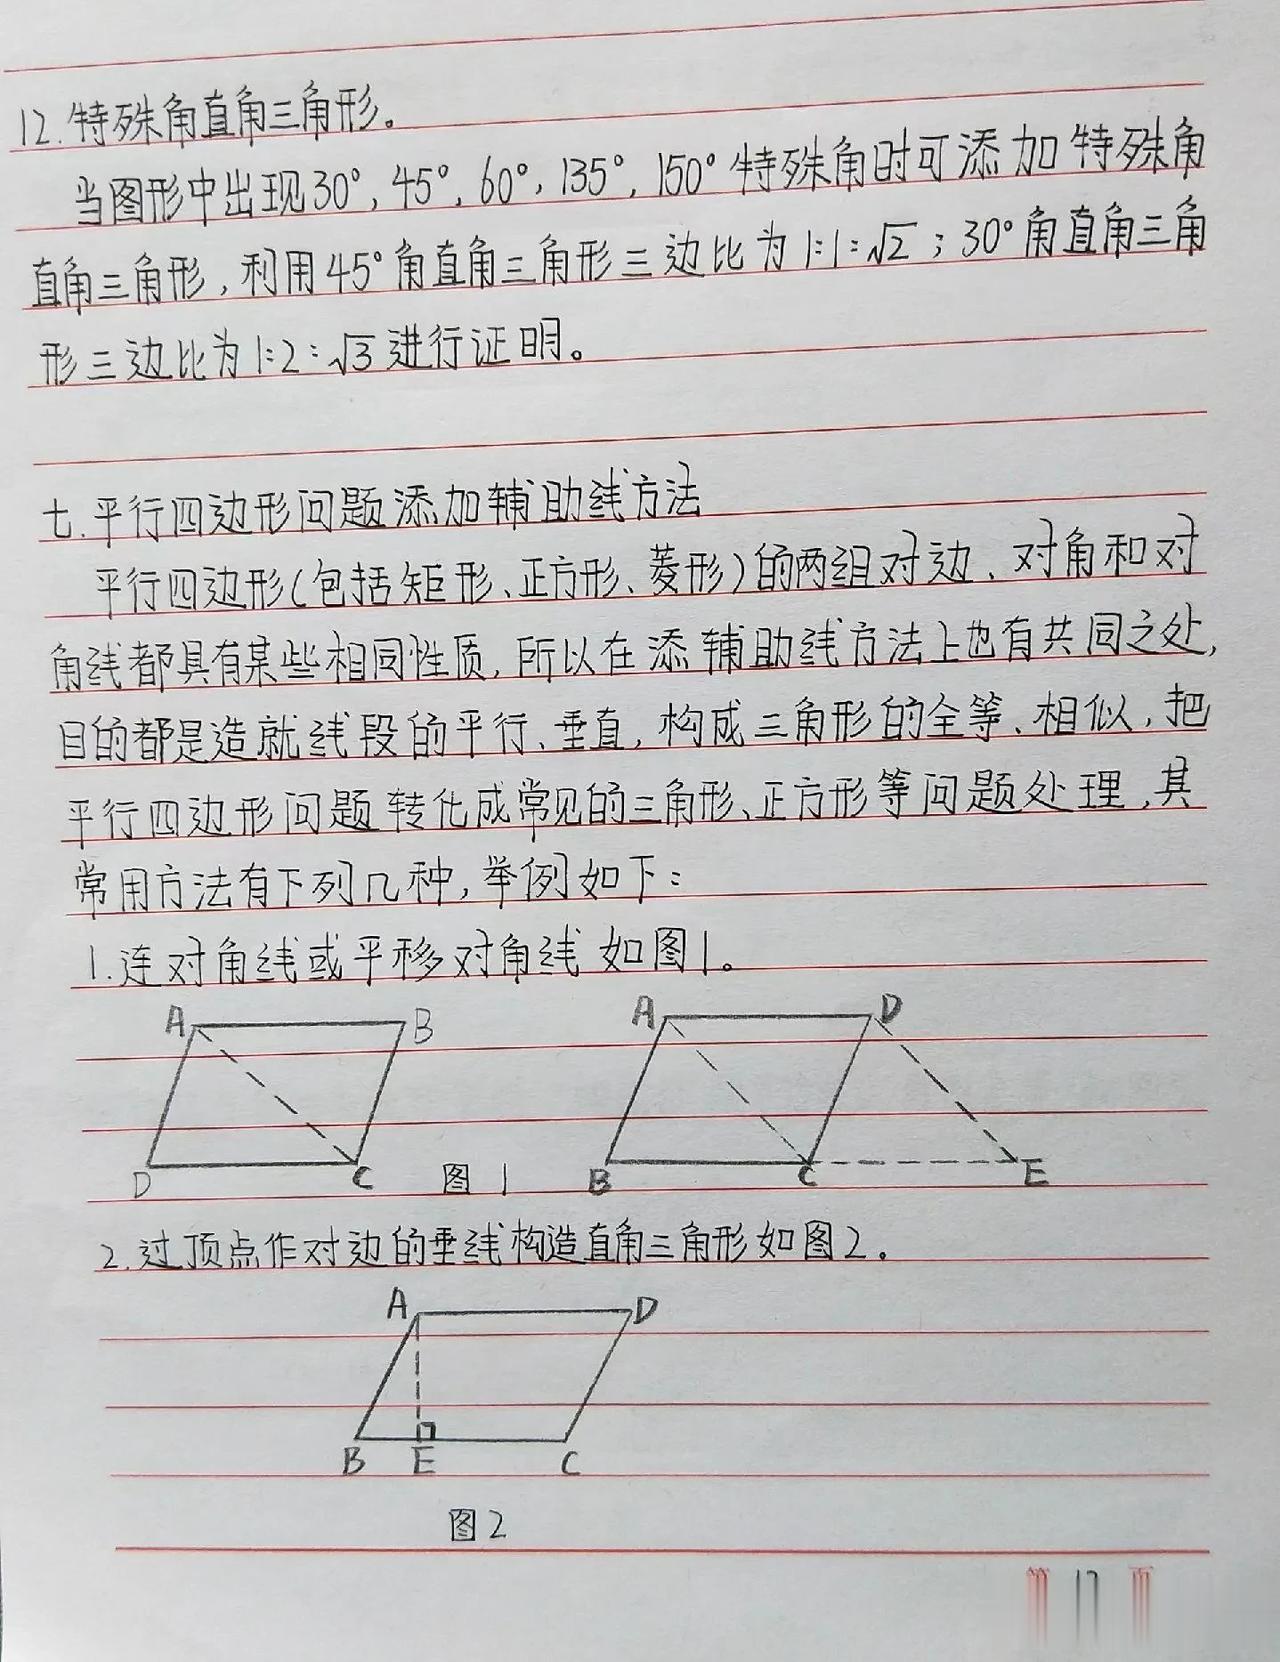 12.特殊角直角三角形。
当图形中出现30°,45°,60°,135°,150°特殊角时可添加特殊角
直角三角形,利用45°角直角三角形三边比为1:1:√2;30°角直角三角
形三边比为1:2:√3进行证明。
七.平行四边形问题添加辅助线方法
平行四边形(包括矩形、正方形、菱形)的两组对边、对角和对
角线都具有某些相同性质,所以在添辅助线方法上也有共同之处,
目的都是造就线段的平行、垂直,构成三角形的全等、相似,把
平行四边形问题转化成常见的三角形、正方形等问题处理,其
常用方法有下列几种,举例如下:
1.连对角线或平移对角线 如图1。
A B A D
D C 图1 B C E
2.过顶点作对边的垂线构造直角三角形如图2。
A D
B E C
图2
第 17 页